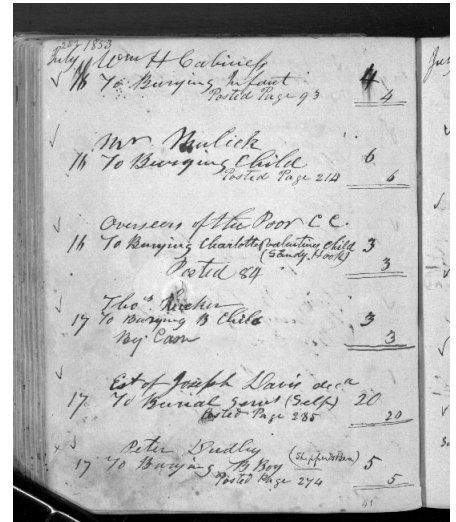 July 1853
Wm H Cabiness
16 To Burying Infant 4
Posted Page 93 4
Mr
16 To Burying Child 6
Posted Page 214 6
Overseers of the Poor C C.
16 To Burying Charlotte Valentines Child 3
(Sandy Hook)
Posted 84 3
Thos Tucker
17 To Burying B Child 3
By Cash 3
Est of Joseph Davis decd
17 To Burial Servt (Self) 20
Posted Page 285 20
Peter Dudley
17 To Burying B Boy 5
Posted Page 274 5